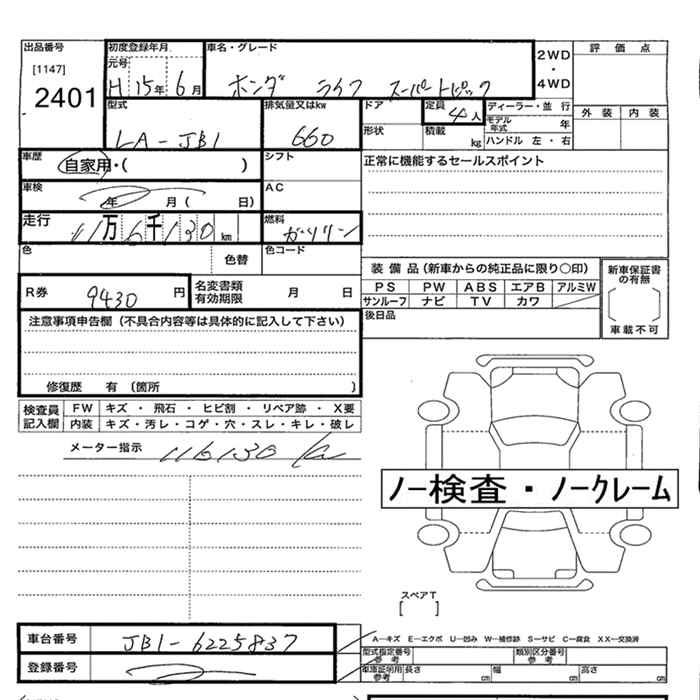 出品番号
[1147]
2401
初度登録年月
元号
H 15年 6月
車名・グレード
ホンダ ライフ スーパートピック
2WD
・
4WD
評価点
外装 内装
型式
LA-JB1
排気量又はkw
660
ドア
定員
4人
形状
積載
kg
ディーラー・並行
モデル年式
年
ハンドル 左・右
車歴
自家用・( )
シフト
正常に機能するセールスポイント
車検
年 月( 日)
AC
走行
11万6千130km
燃料
ガソリン
色
色替
色コード
装備品(新車からの純正品に限り○印)
PS PW ABS エアB アルミW
サンルーフ ナビ TV カワ
新車保証書の有無
車載不可
R券
9430円
名変書類有効期限
月 日
後日品
注意事項申告欄(不具合内容等は具体的に記入して下さい)
修復歴 有(箇所 )
検査員記入欄
FW キズ・飛石・ヒビ割・リペア跡・X要
内装 キズ・汚レ・コゲ・穴・スレ・キレ・破レ
メーター指示 116130 km
ノー検査・ノークレーム
スペアT
[ ]
車台番号
JB1-6225837
A…キズ E…エクボ U…凹み W…補修跡 S…サビ C…腐食 XX…交換済
登録番号
型式指定番号
参考
類別区分番号
参考
車庫証明用
参考
長さ cm
幅 cm
高さ cm